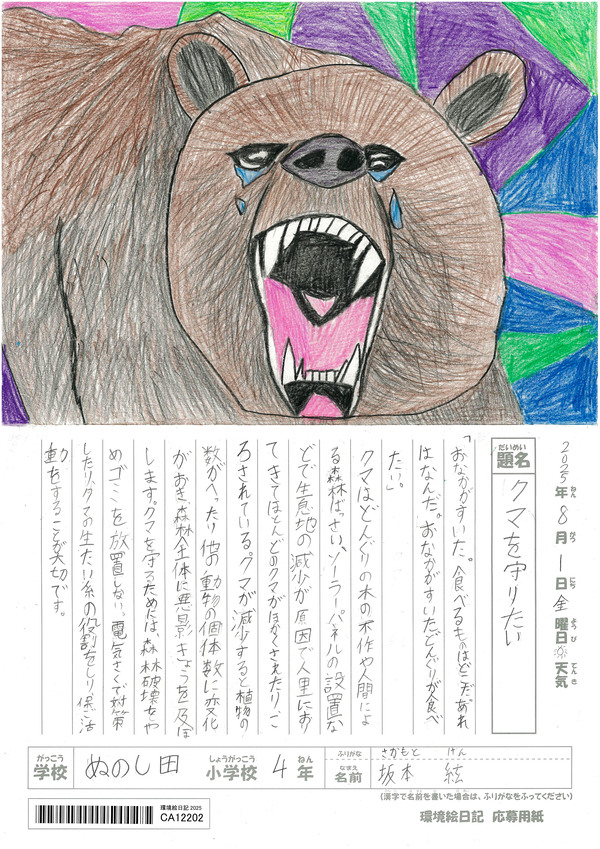 2025年8月1日金曜日☼天気
ねん がつ にち ようび てんき
だいめい
題名 クマを守りたい
「おなかがすいた。食べるものはどこだ。あれ
はなんだ。おなかがすいた。どんぐりが食べ
たい。」
クマはどんぐりの木の不作や人間によ
る森林ばっさい、ソーラーパネルの設置な
どで生息地の減少が原因で人里におり
てきてほとんどのクマがほかくされたり、こ
ろされている。クマが減少すると植物の
数がへったり他の動物の個体数に変化
がおき森林全体に悪影きょうを及ぼ
します。クマを守るためには、森林破壊をや
めゴミを放置しない、電気さくで対策
したり、クマの生たい系の役割をしり保ご活
動をすることが大切です。
がっこう しょうがっこう ねん
学校 ぬのし田 小学校 4年
ふりがな さかもと けん
なまえ
名前 坂本 絃
(漢字で名前を書いた場合は、ふりがなをふってください)
環境絵日記2025
CA12202
環境絵日記 応募用紙